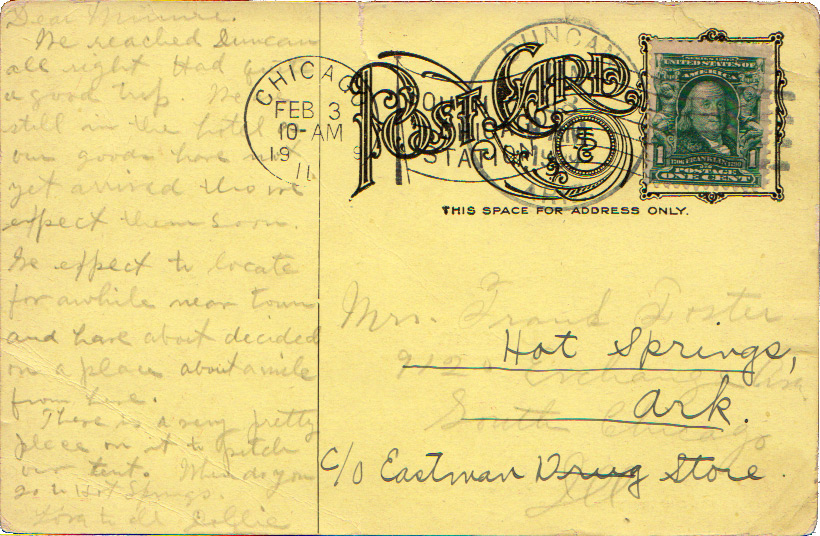 Dear Minnie.
We reached Duncan
all right Had quite
a good trip. We
still in the hotel
our goods have not
yet arrived tho we
expect them soon.
We expect to locate
for awhile near town
and have about decided
on a place about a mile
from here.
There is a very pretty
place on it to pitch
our tent. When do you
go to Hot Springs.
Love to all Callie
CHICAGO
FEB 3
10-AM
19 11
SOUTH
CHICAGO
STATION
DUNCAN
POST CARD
THIS SPACE FOR ADDRESS ONLY.
UNITED STATES OF
1 1
1706 FRANKLIN 1790
POSTAGE
ONE CENT
Mrs. Frank Foster
9120 Exchange Ave
South Chicago
Ill
Hot Springs,
Ark.
c/o Eastman Drug Store.